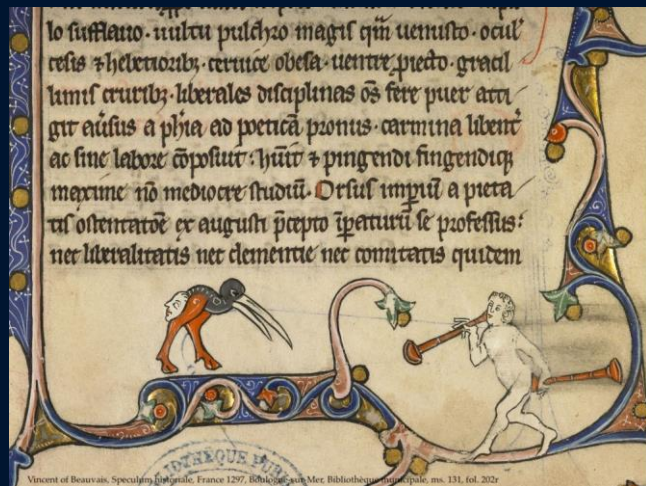 lo sufflauo · uultu pulchro magis q̄m uenusto · ocul'
cesis ⁊ hebetiorib; · ceruice obesa · uentre p̄iecto · gracil
limis cruribꝫ · liberales disciplinas os̄ fere puer atti
git aūsus a ph̄ia ad poeticā pronus · carmina libent̄
ac sine labore c̄oposuit : h̄uit ⁊ pingendi fingendiqꝫ
maxime nō mediocre studiū · Orsus imp̄iū a pieta
tis ostentatōe ex augusti p̄cepto īpaturū se professus :
nec liberalitatis nec clementie nec comitatis quidem
BIBLIOTHEQUE
Vincent of Beauvais, Speculum historiale, France 1297, Boulogne-sur-Mer, Bibliothèque municipale, ms. 131, fol. 202r